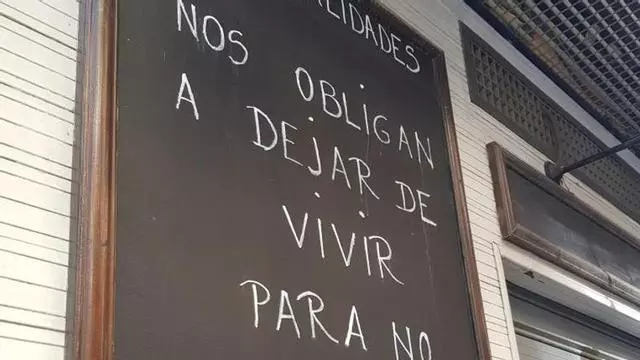 NOS
OBLIGAN
A DEJAR DE
VIVIR
PARA NO